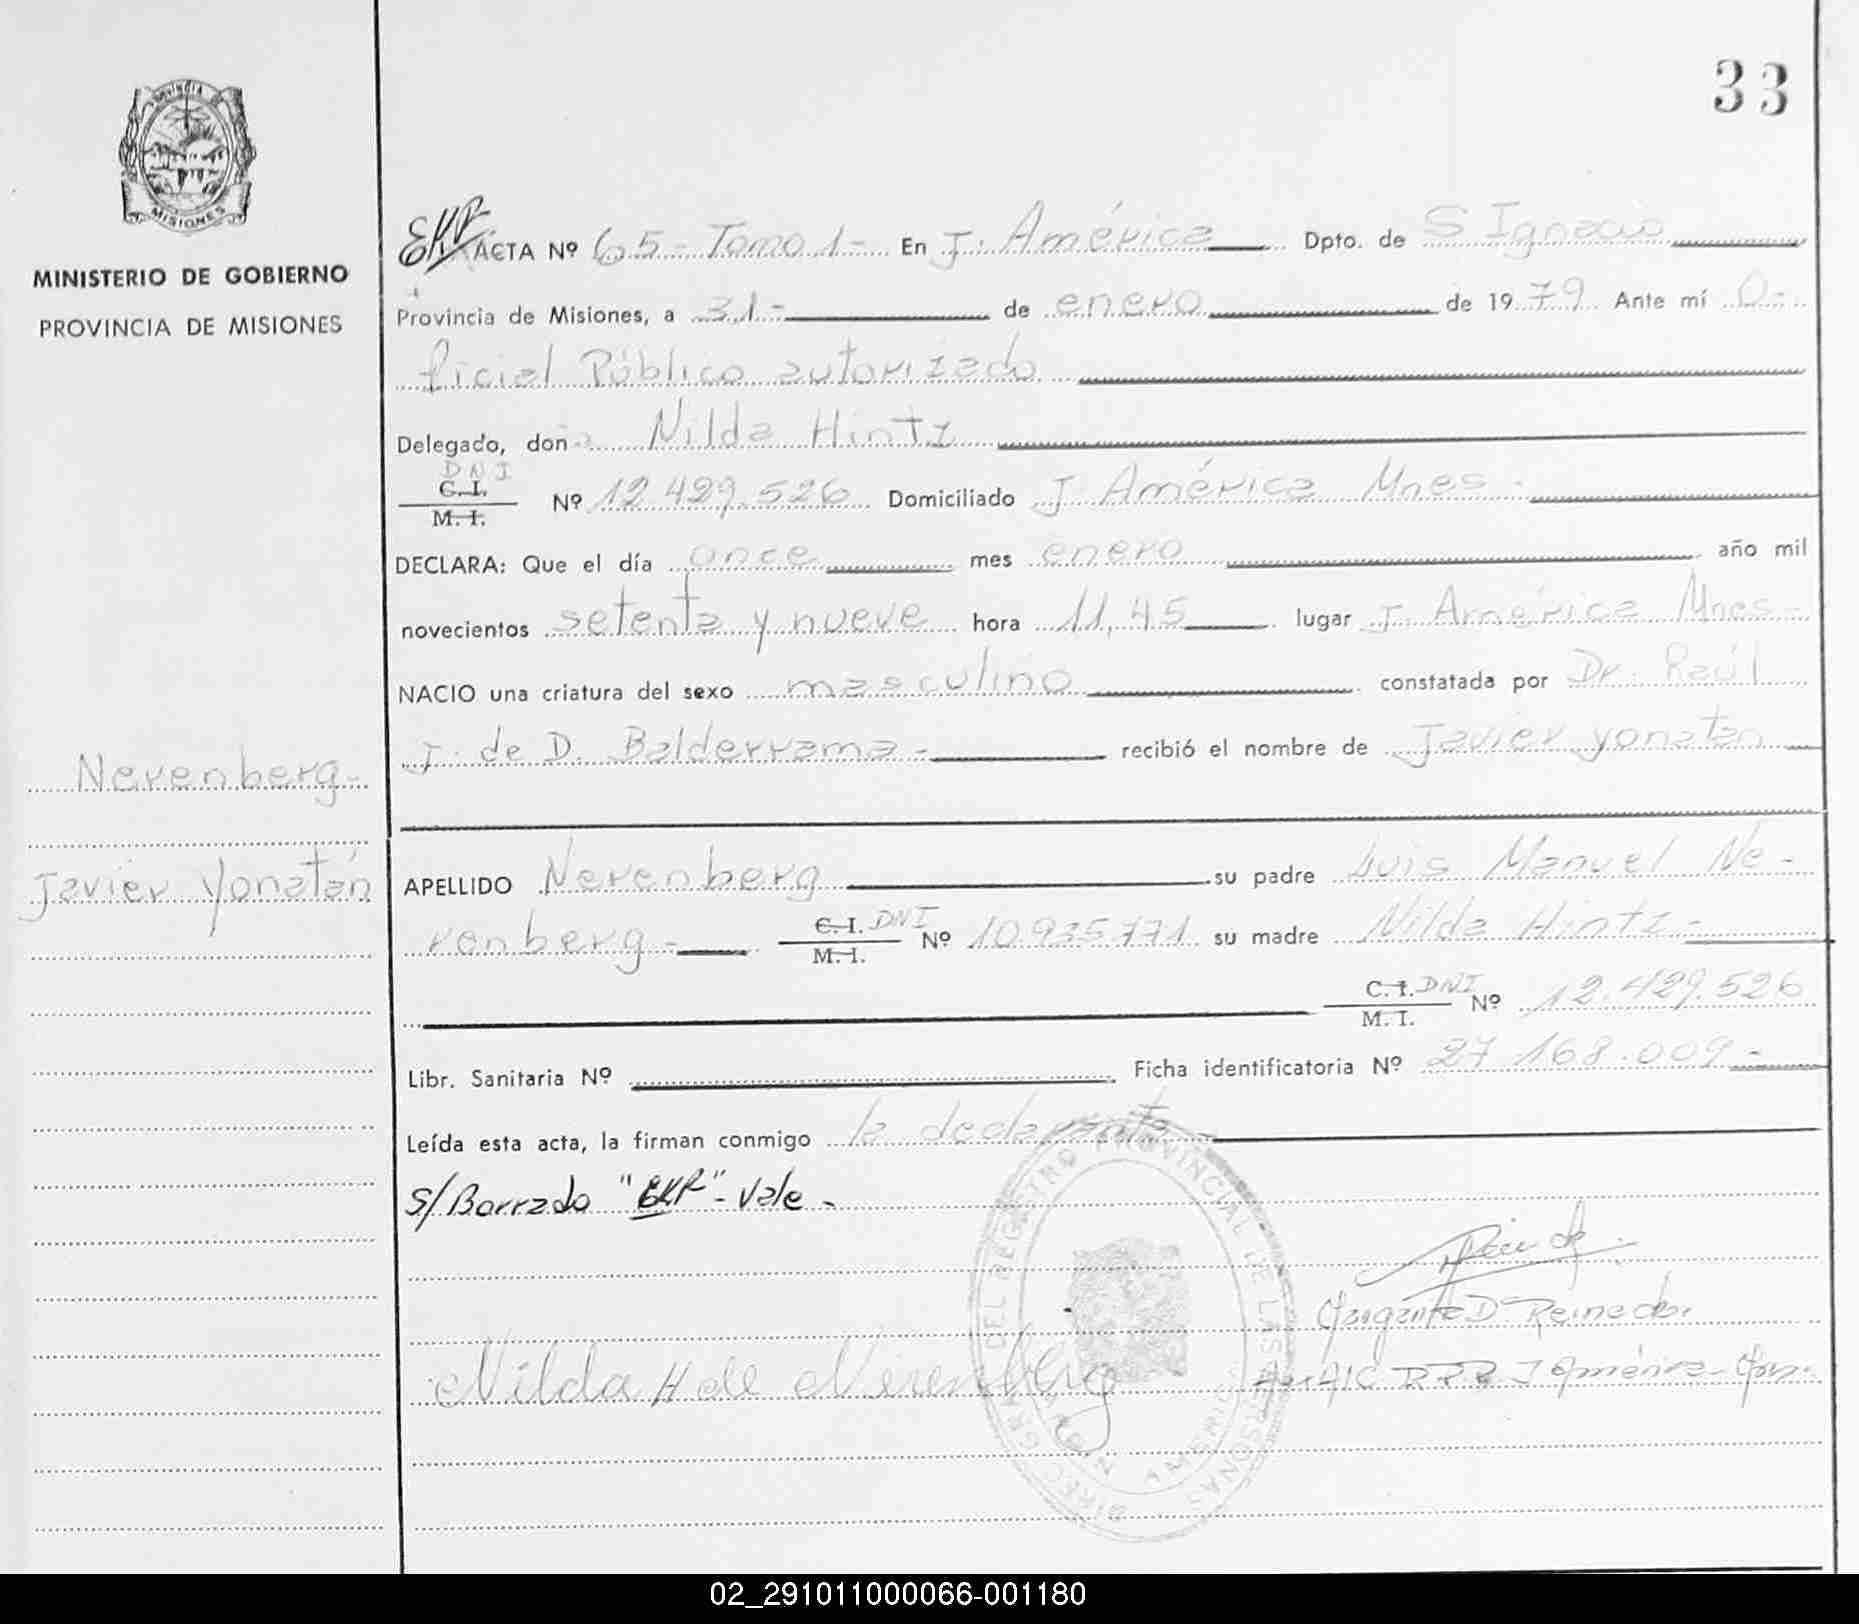 33
PROVINCIA
MISIONES
MINISTERIO DE GOBIERNO
PROVINCIA DE MISIONES
ACTA Nº 65 - Tomo 1 - En J. América Dpto. de S Ignacio
Provincia de Misiones, a 31 - de enero de 19 79 Ante mí O-
ficial Público autorizado
Delegado, don a Nilda Hintz
DNI
C. I.
M. I. Nº 12.429.526 Domiciliado J América Mnes -
DECLARA: Que el día once mes enero año mil
novecientos setenta y nueve hora 11,45 lugar J. América Mnes -
NACIO una criatura del sexo masculino constatada por Dr. Raúl
J. de D. Balderrama - recibió el nombre de Javier yonatan
Nerenberg -
Javier Yonatán
APELLIDO Nerenberg su padre Luis Manuel Ne -
renberg - C. I. DNI M. I. Nº 10.935.771 su madre Nilda Hintz -
C. I. DNI M. I. Nº 12.429.526
Libr. Sanitaria Nº Ficha identificatoria Nº 27.168.009 -
Leída esta acta, la firman conmigo la declarante -
S/Borrado "EXP" - Vale -
Nilda H de Nerenberg
DEL REGISTRO PROVINCIAL DE LAS PERSONAS
AMERICA
02_291011000066-001180